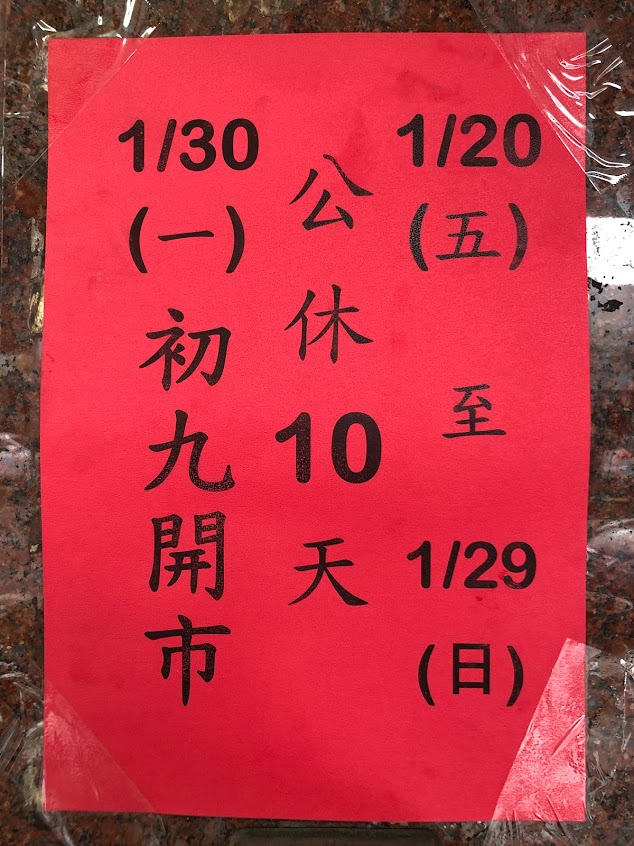 1/20(五)至1/29(日)
公休10天
1/30(一)初九開市